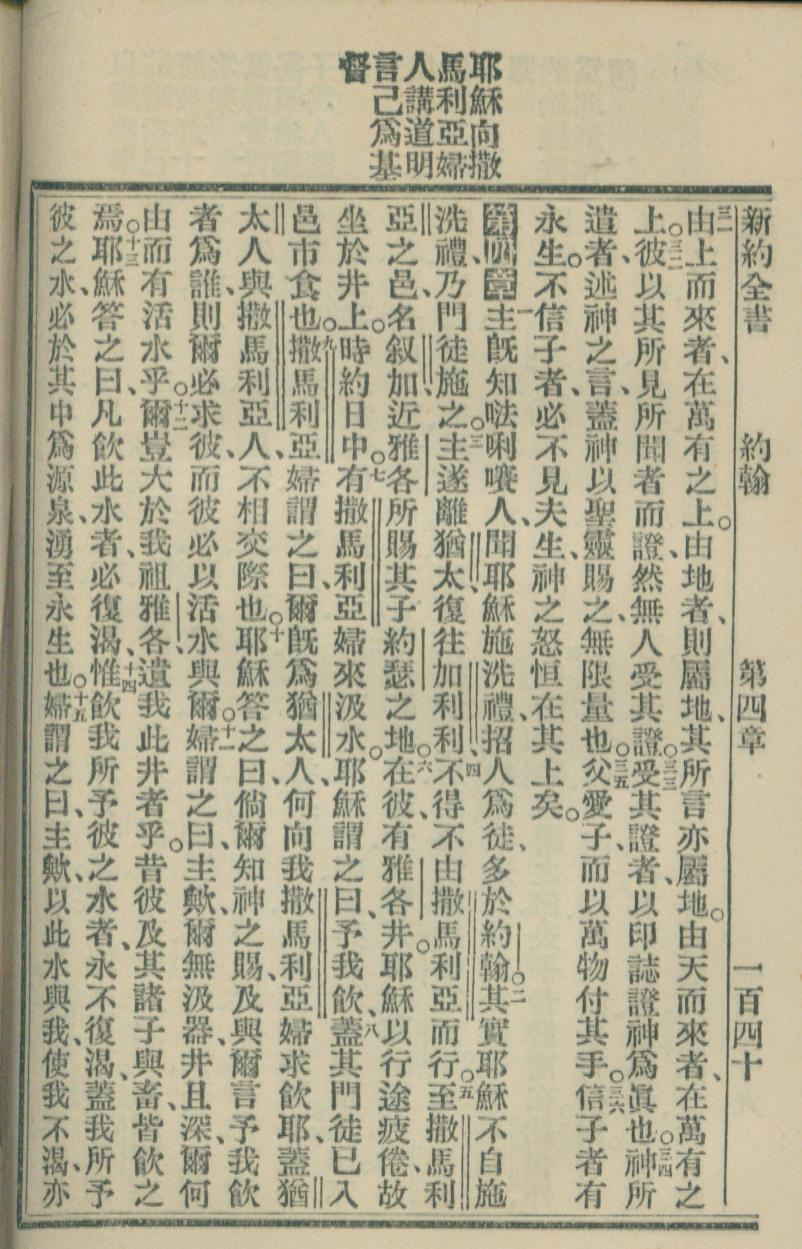 耶穌向撒
馬利亞婦
人講道明
言己爲基
督
新約全書 約翰 第四章 一百四十
三一由上而來者、在萬有之上。由地者、則屬地、其所言亦屬地。由天而來者、在萬有之
上。三二彼以其所見所聞者而證、然無人受其證。三三受其證者、以印誌證神爲眞也。三四神所
遣者、述神之言、蓋神以聖靈賜之、無限量也。三五父愛子、而以萬物付其手。三六信子者有
永生。不信子者、必不見夫生、神之怒恒在其上矣。
第四章一主旣知𠵽唎㘔人、聞耶穌施洗禮、招人爲徒、多於約翰。二其實耶穌不自施
洗禮、乃門徒施之。三主遂離猶太、復往加利利、四不得不由撒馬利亞而行。五至撒馬利
亞之邑、名叙加、近雅各所賜其子約瑟之地。六在彼、有雅各井。耶穌以行途疲倦、故
坐於井上。時約日中。七有撒馬利亞婦來汲水。耶穌謂之曰、予我飲、八蓋其門徒已入
邑市食也。九撒馬利亞婦謂之曰、爾旣爲猶太人、何向我撒馬利亞婦求飲耶、蓋猶
太人與撒馬利亞人、不相交際也。十耶穌答之曰、倘爾知神之賜、及與爾言予我飲
者爲誰、則爾必求彼、而彼必以活水與爾。十一婦謂之曰、主歟、爾無汲器、井且深、爾何
由而有活水乎。十二爾豈大於我祖雅各、遺我此井者乎。昔彼及其諸子與畜、皆飲之
焉。十三耶穌答之曰、凡飲此水者、必復渴、十四惟飲我所予彼之水者、永不復渴、蓋我所予
彼之水、必於其中爲源泉、湧至永生也。十五婦謂之曰、主歟、以此水與我、使我不渴、亦